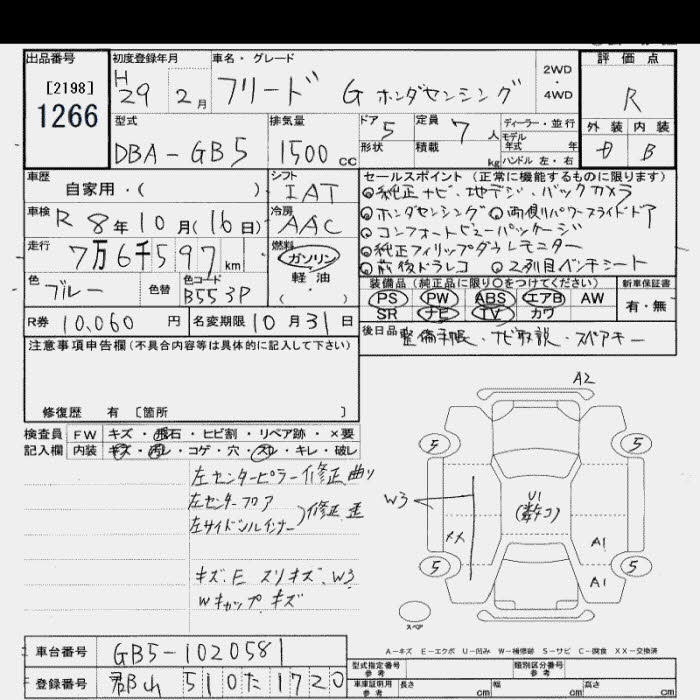 出品番号
[2198]
1266
初度登録年月
H 29 2月
車名・グレード
フリード G ホンダセンシング
2WD
・
4WD
評価点
R
外装 内装
B
型式
DBA-GB5
排気量
1500 cc
ドア 5
形状
定員 7 人
積載 kg
ディーラー・並行
モデル
年式 年
ハンドル 左・右
車歴
自家用・( )
シフト
IAT
セールスポイント (正常に機能するものに限ります)
◎純正ナビ、地デジ、バックカメラ
◎ホンダセンシング ◎両側パワースライドドア
◎コンフォートビューパッケージ
◎純正フィリップダウンモニター
◎前後ドラレコ ◎2列目ベンチシート
車検 R 8年10月(16日)
冷房
AAC
走行
7万6千597km
燃料
ガソリン
軽油
( )
色
ブルー
色替
色コード
B553P
装備品 (純正品に限り○をつけてください)
PS PW ABS エアB AW
SR ナビ TV カワ
新車保証書
有・無
R券 10,060 円
名変期限 10月31日
後日品 整備手帳、ナビ取説、スペアキー
注意事項申告欄 (不具合内容等は具体的に記入して下さい)
修復歴 有 [箇所 ]
検査員 FW キズ・飛石・ヒビ割・リペア跡・×要
記入欄 内装 キズ・汚レ・コゲ・穴・スレ・キレ・破レ
左センターピラー修正曲り
左センターフロア
左サイドシルインナー )修正歪
キズ、E スリキズ、W3
Wキャップ、キズ
A2
5 5
W3
U1
(数ケ)
XX
A1
5 A1 5
スペア
A-キズ E-エクボ U-凹み W-補修跡 S-サビ C-腐食 XX-交換済
車台番号 GB5-1020581
登録番号 郡山 510 た 1720
型式指定番号
参考
類別区分番号
参考
車庫証明用
参考
長さ cm
幅 cm
高さ cm